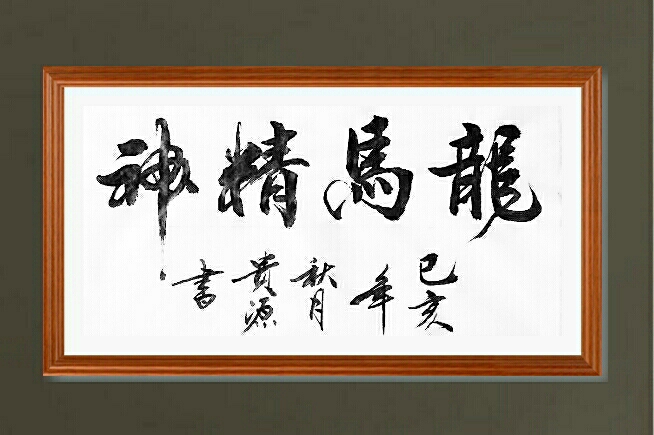 龍馬精神
己亥年秋月貴源書